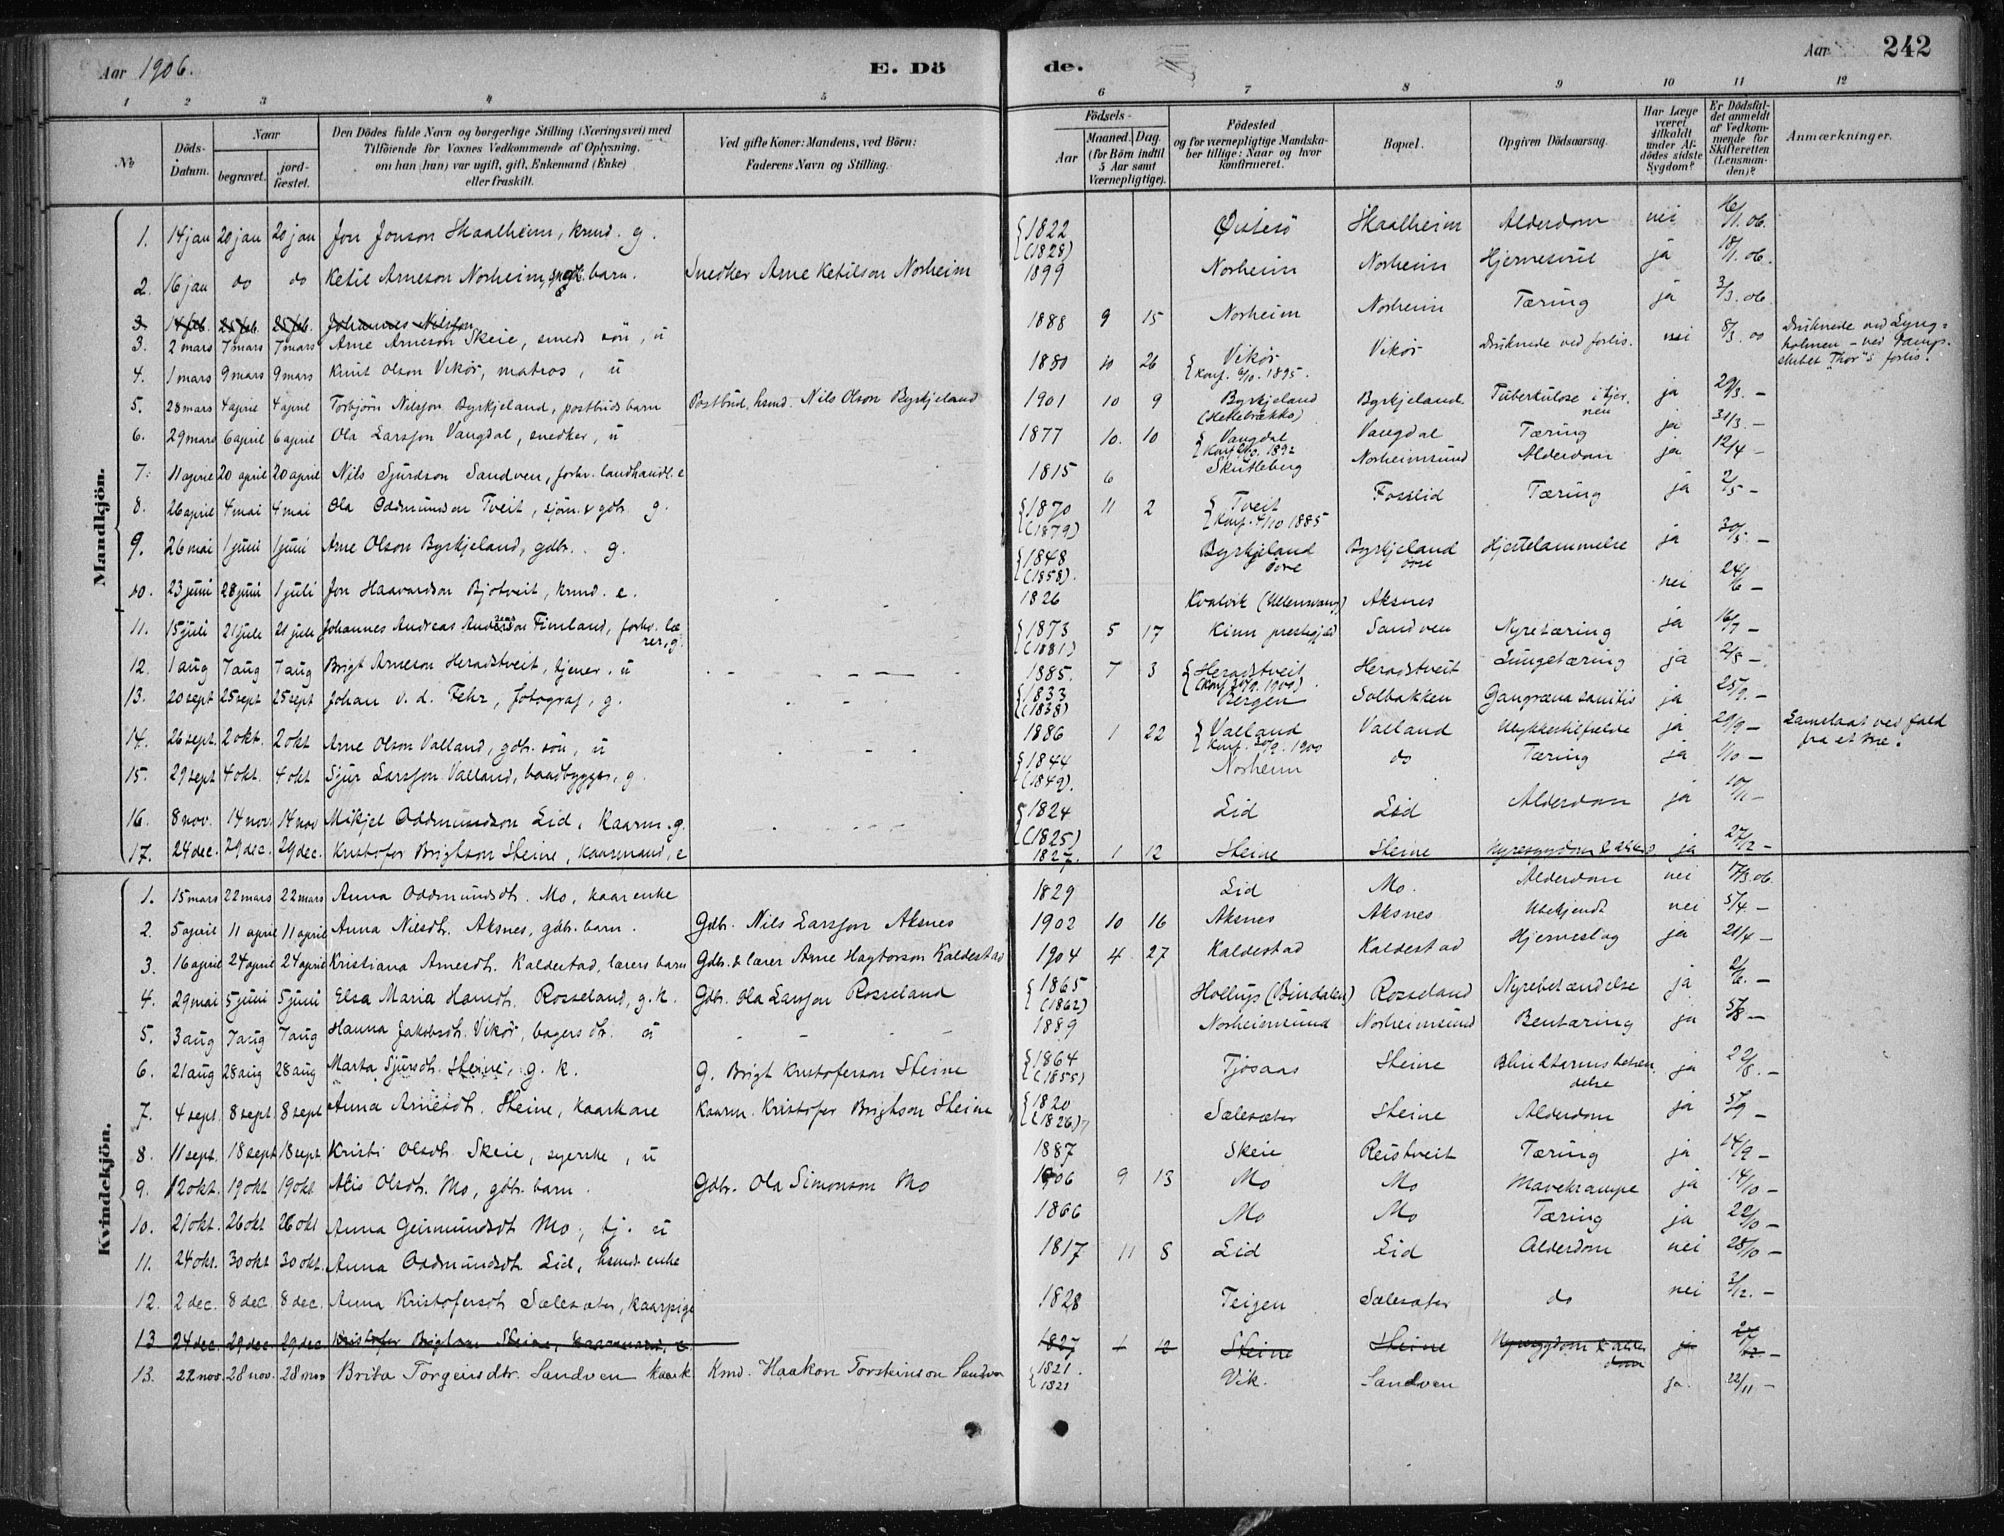 Aar 1906. E. Dö de. Aar 242
1 2 3 4 5 6 7 8 9 10 11 12
No Döds-Datum. Naar begravet. jord-fæstet. Den Dödes fulde Navn og borgerlige Stilling (Næringsvei) med Tilföiende for Voxnes Vedkommende af Oplysning, om han (hun) var ugift, gift, Enkemand (Enke) eller fraskilt. Ved gifte Koner: Mandens, ved Börn: Faderens Navn og Stilling. Födsels- Aar Maaned. Dag. (for Börn indtil 5 Aar samt Værnepligtige). Födested og for værnepligtige Mandskaber tillige: Naar og hvor konfirmeret. Bopæl. Opgiven Dödsaarsag. Har Læge været tilkaldt under Afdödes sidste Sygdom? Er Dödsfaldet anmeldt af Vedkommende for Skifteretten (Lensmanden)? Anmærkninger.
Mandkjön.
1. 14 jan 20 jan 20 jan Jon Jonson Skaalheim, krmd. g. 1822 (1828) Östesö Skaalheim Alderdom nei 16/1. 06.
2. 16 jan do do Ketil Arneson Norheim, barn. Snedker Arne Ketilson Norheim 1899 Norheim Norheim Hjernesvul ja 18/1. 06.
3 14 feb. 25 feb. 25 feb. Johannes Nilsson
3. 2 mars 7 mars 7 mars Arne Arneson Skeie, smeds sön, u 1888 9 15 Norheim Norheim Tæring ja 3/3. 06.
4. 1 mars 9 mars 9 mars Knut Olson Vikör, matros, u 1880 10 26 Vikör Konf. 6/10. 1895. Vikör Druknede ved forlis. nei 8/3. 06 Druknede ved Lyngholmen - ved Dampskibet "Thor"s forlis.
5. 28 mars 4 april 4 april Torbjörn Nilsson Byrkjeland, postbuds barn Postbud, hsmd. Nils Olson Byrkjeland 1901 10 9 Byrkjeland (Klettebrækka) Byrkjeland. Tuberkulose i hjernen ja 29/3. -
6. 29 mars 6 april 6 april Ola Larsson Vangdal, snedker, u 1877 10. 10 Vangdal Konf. 1892 Vangdal Tæring ja 31/3. -
7. 11 april 20 april 20 april Nils Sjurdson Sandven, forhv. landhandl. e 1815 6 Skutleberg Norheimsund Alderdom ja 12/4 -
8. 26 april 4 mai 4 mai Ola Oddmundson Tveit, sjöm. & gdbr. g. 1870 (1879) 11 2 Tveit Konf. 4/10 1885 Fosslid Tæring ja 2/5 -
9. 26 mai 1 juni 1 juni Arne Olson Byrkjeland, gdbr. g. 1848 (1858). Byrkjeland övre Byrkjeland övre Hjertelammelse ja 30/5. -
10. 23 juni 28 juni 1 juli Jon Haavardson Bjotveit, krmd. e. 1826 Kvalvik (Ullensvang) Aksnes nei 24/6 -
11. 15 juli 21 juli 21 juli Johannes Andreas Anderson Finland, forhv. lærer, g. 1873 (1881) 5 17 Kinn prestgjeld Sandven Nyretæring ja 16/7 -
12. 1 aug 7 aug 7 aug Brigt Arneson Heradstveit, tjener, u 1885. 7 3 Heradstveit (Konf. 30/9. 1900). Heradstveit Lungetæring ja 2/8 -
13. 20 sept 25 sept 25 sept Johan v. d. Fehr, fotograf, g. 1833 (1838) Bergen Solbakken Gangræna senilis ja 25/9. -
14. 26 sept. 2 okt. 2 okt Arne Olson Valland, gdbr. sön, u 1886 1 22 Valland Konf. 30/9. 1900 Valland Ulykkestilfælde ja 29/9 - Lamslaat ved fald fra et træ.
15. 29 sept 4 okt. 4 okt Sjur Larsson Valland, baadbygger, g. 1844 (1849). Norheim do Tæring ja 1/10 -
16. 8 nov. 14 nov. 14 nov Mikjel Oddmundson Lid, kaarm. g. 1824 (1825) Lid Lid Alderdom ja 10/11 -
17. 24 dec. 29 dec. 29 dec. Kristofer Brigtson Steine, kaarmand, e 1827. 1 12 Steine Steine Nyresygdom & ja 27/12 -
Kvindekjön.
1. 15 mars 22 mars 22 mars Anna Oddmundsdt. Mo, kaarenke 1829 Lid Mo. Alderdom nei 17/3. 06.
2. 5 april 11 april 11 april Anna Nilsdt. Aksnes, gdbr. barn. Gdbr. Nils Larsson Aksnes 1902 10 16 Aksnes Aksnes Ubekjendt nei 5/4. -
3. 16 april 24 april 24 april Kristiana Arnesdt. Kaldestad, lærers barn Gdbr. & lærer Arne Hagtorson Kaldestad 1904 4 27 Kaldestad Kaldestad Hjerneslag ja 21/4 -
4. 29 mai 5 juni 5 juni Elsa Maria Hansdt. Rosseland, g. k. Gdbr. Ola Larsson Rosseland 1865 (1862) Hollup (Bindalen) Rosseland Nyrebetændelse ja 2/6. -
5. 3 aug 7 aug 7 aug Hanna Jakobsdt. Vikör, bagers dt. u 1889 Norheimsund Norheimsund Bentæring ja 5/8 -
6. 21 aug 28 aug 28 aug Marta Sjursdt. Steine, g. k. G. Brigt Kristoferson Steine 1864 (1855) Tjosaas Steine Blindtarmsbetændelse ja 22/8. -
7. 4 sept. 8 sept. 8 sept Anna Arnesdt. Steine, kaarkone Kaarm. Kristofer Brigtson Steine 1820 (1826) Sælesæter Steine Alderdom ja 5/9 -
8. 11 sept. 18 sept 18 sept. Kristi Olsdt. Skeie, syerske, u 1887 Skeie Reistveit Tæring ja 14/9 -
9. 12 okt. 19 okt 19 okt. Alis Olsdt. Mo, gdbr. barn. Gdbr. Ola Simonson Mo 1906 9 13 Mo Mo Mavekrampe ja 14/10 -
10. 21 okt. 26 okt 26 okt Anna Geirmundsdt Mo, tj. u 1866 Mo Mo Tæring ja 22/10 -
11. 24 okt. 30 okt 30 okt. Anna Oddmundsdt. Lid, husmds enke 1817 11 8 Lid Lid Alderdom nei 28/10 -
12. 2 dec. 8 dec. 8 dec. Anna Kristofersdt Sælesæter, kaarpige 1828 Teigen Sælesæter do nei 3/12. -
13 24 dec. 29 dec. 29 dec Kristofer Brigtson Steine, kaarmand, e. 1827 1 12 Steine Steine Nyresygdom & alderdom ja 27/12. -
13. 22 nov. 28 nov. 28 nov Brita Torgeirsdtr. Sandven kaark Kmd. Haakon Torsteinson Sandven 1821. 1821 Vik. Sandven ja. 22/11 -